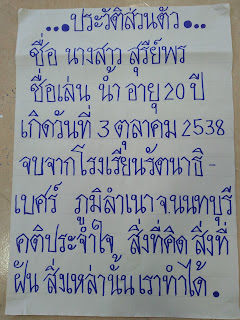 ...ประวัติส่วนตัว...
ชื่อ นางสาว สุรีย์พร
ชื่อเล่น น้ำ อายุ 20 ปี
เกิดวันที่ 3 ตุลาคม 2538
จบจากโรงเรียนรัตนาธิ-
เบศร์ ภูมิลำเนา จ.นนทบุรี
คติประจำใจ สิ่งที่คิด สิ่งที่
ฝัน สิ่งเหล่านั้น เราทำได้.